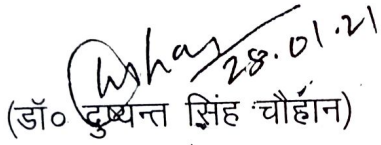 28.01.21
(डॉ० दुष्यन्त सिंह चौहान)